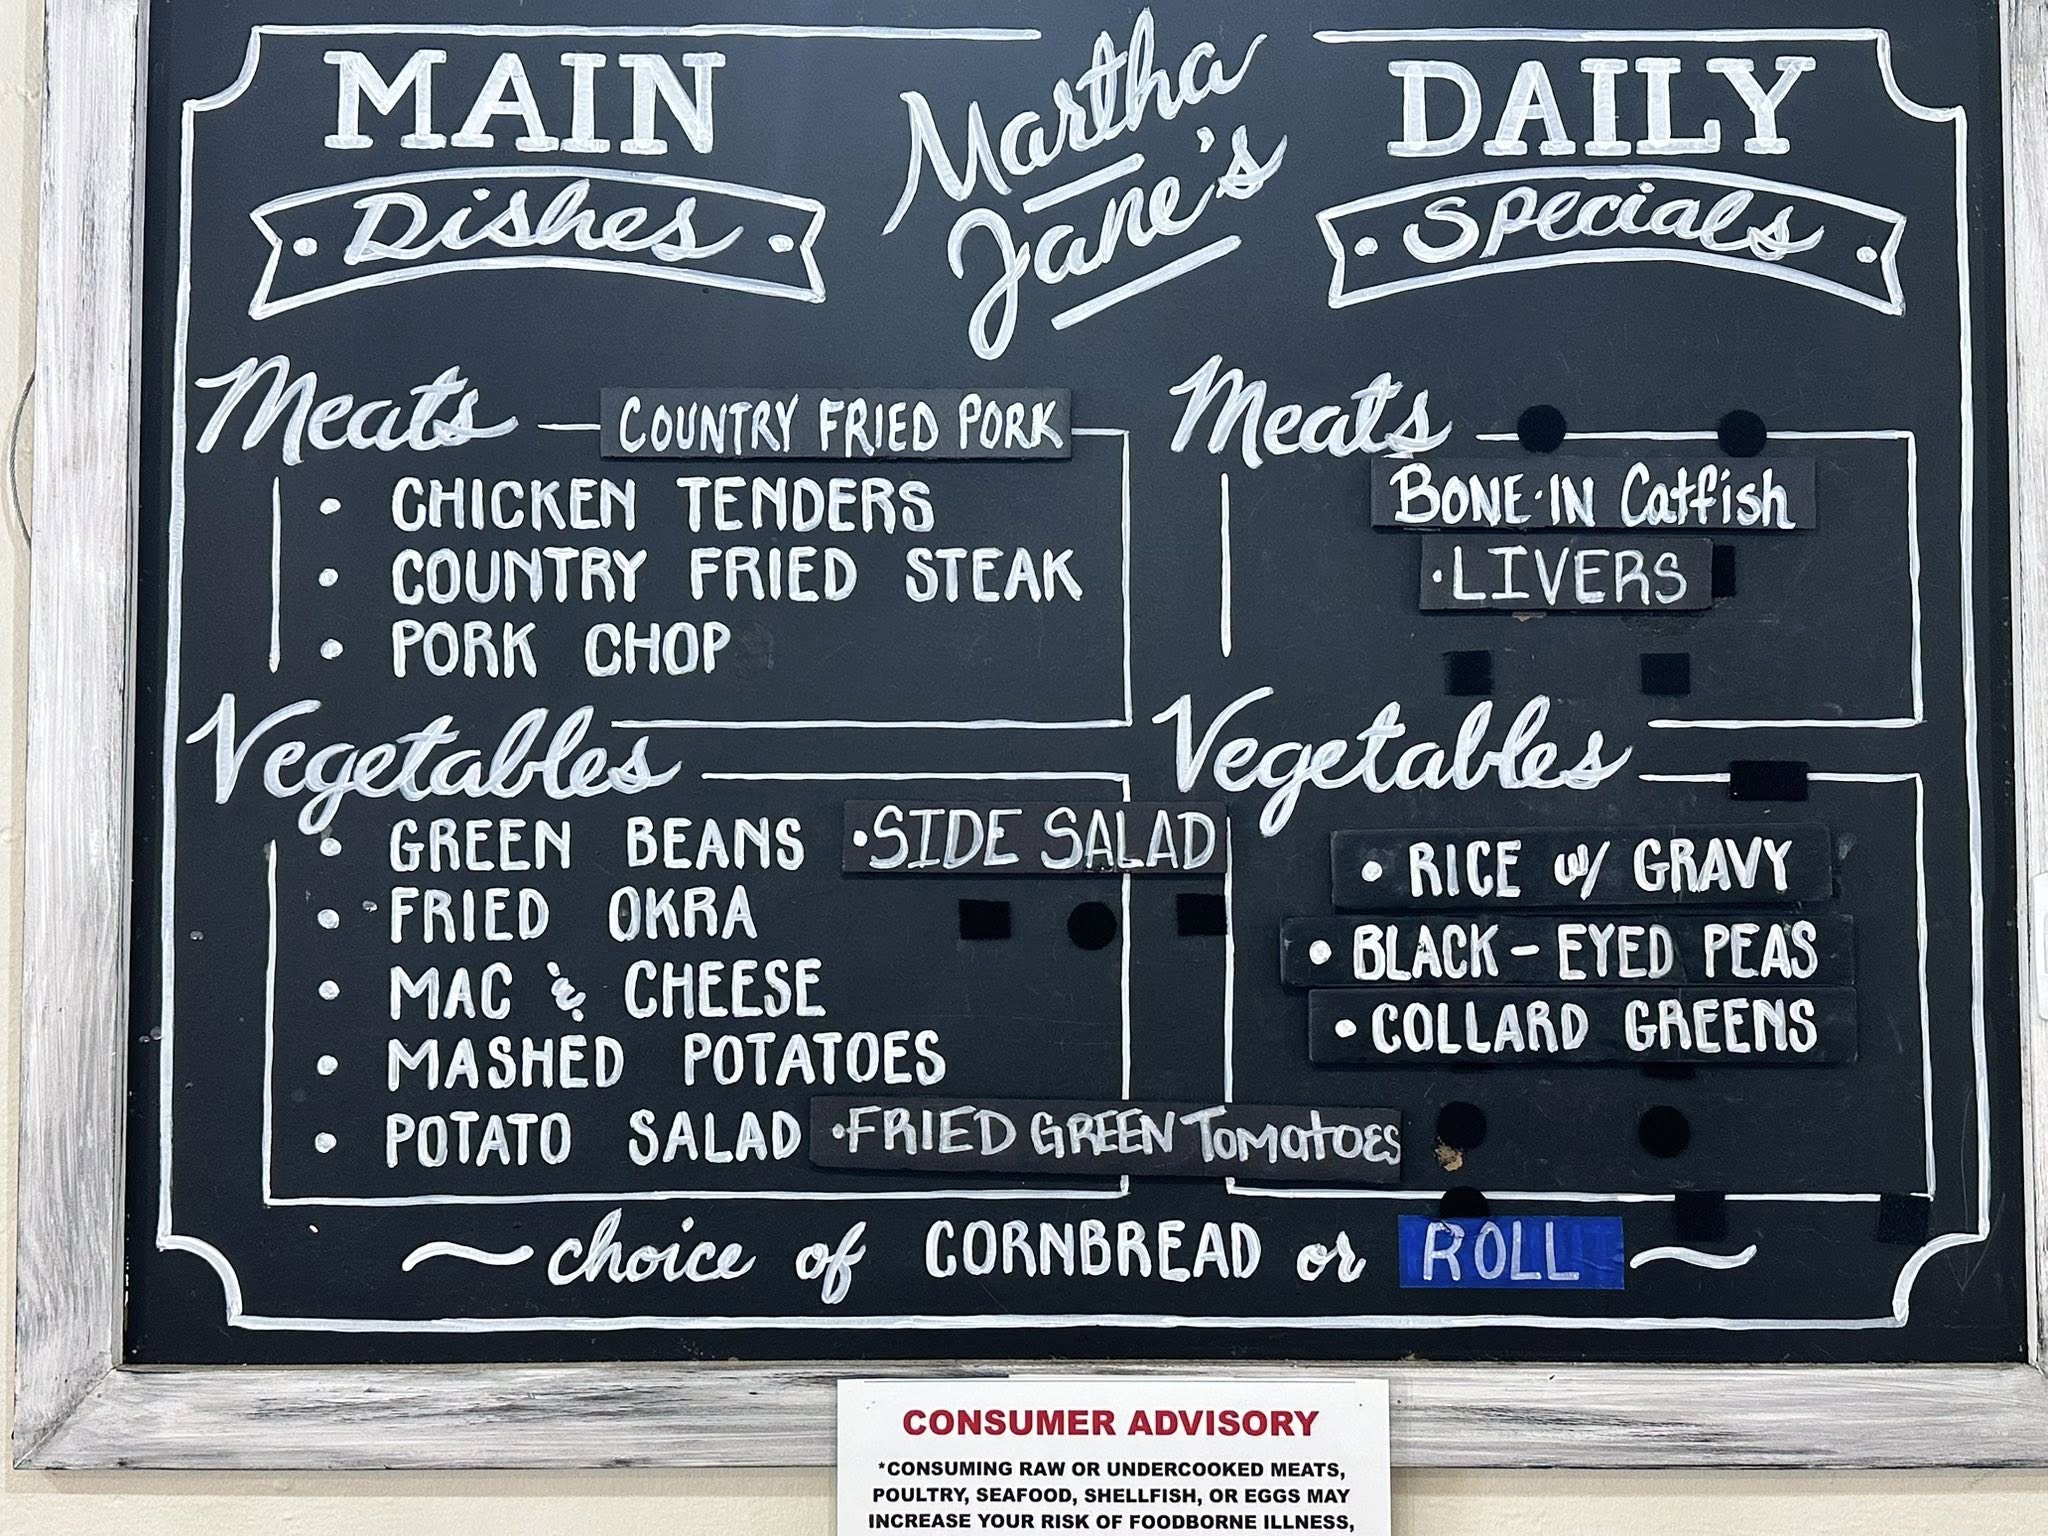 MAIN
Dishes
Martha
Jane's
DAILY
Specials
Meats
COUNTRY FRIED PORK
• CHICKEN TENDERS
• COUNTRY FRIED STEAK
• PORK CHOP
Vegetables
• GREEN BEANS
• SIDE SALAD
• FRIED OKRA
• MAC & CHEESE
• MASHED POTATOES
• POTATO SALAD
• FRIED GREEN TOMATOES
Meats
BONE-IN Catfish
• LIVERS
Vegetables
• RICE w/ GRAVY
• BLACK-EYED PEAS
• COLLARD GREENS
~choice of CORNBREAD or ROLL~
CONSUMER ADVISORY
*CONSUMING RAW OR UNDERCOOKED MEATS,
POULTRY, SEAFOOD, SHELLFISH, OR EGGS MAY
INCREASE YOUR RISK OF FOODBORNE ILLNESS,